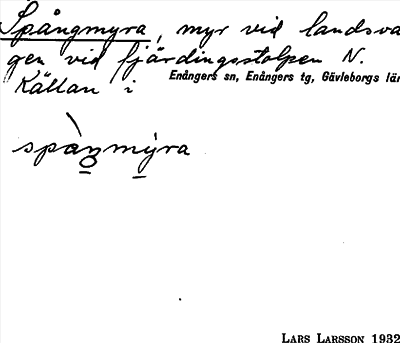 Spångmyra, myr vid landsvä
gen vid fjärdingsstolpen N.
Källan i Enångers sn, Enångers tg, Gävleborgs län
spàŋmýra
LARS LARSSON 1932